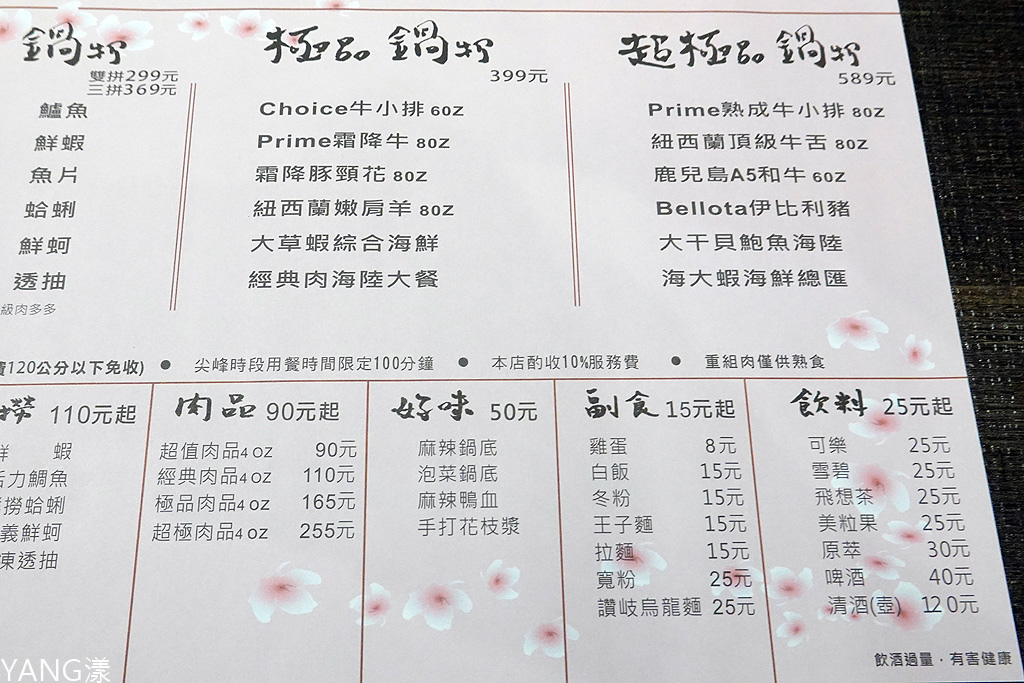 鍋物
雙拼299元
三拼369元
鱸魚
鮮蝦
魚片
蛤蜊
鮮蚵
透抽
級肉多多
極品鍋物
399元
Choice牛小排 6OZ
Prime霜降牛 8OZ
霜降豚頸花 8OZ
紐西蘭嫩肩羊 8OZ
大草蝦綜合海鮮
經典肉海陸大餐
超極品鍋物
589元
Prime熟成牛小排 8OZ
紐西蘭頂級牛舌 8OZ
鹿兒島A5和牛 6OZ
Bellota伊比利豬
大干貝鮑魚海陸
海大蝦海鮮總匯
費120公分以下免收) ● 尖峰時段用餐時間限定100分鐘 ● 本店酌收10%服務費 ● 重組肉僅供熟食
撈 110元起
鮮 蝦
活力鯛魚
撈蛤蜊
義鮮蚵
凍透抽
肉品 90元起
超值肉品4 OZ 90元
經典肉品4OZ 110元
極品肉品4 OZ 165元
超極肉品4 OZ 255元
好味 50元
麻辣鍋底
泡菜鍋底
麻辣鴨血
手打花枝漿
副食 15元起
雞蛋 8元
白飯 15元
冬粉 15元
王子麵 15元
拉麵 15元
寬粉 25元
讚岐烏龍麵 25元
飲料 25元起
可樂 25元
雪碧 25元
飛想茶 25元
美粒果 25元
原萃 30元
啤酒 40元
清酒(壺) 120元
飲酒過量．有害健康
YANG漾